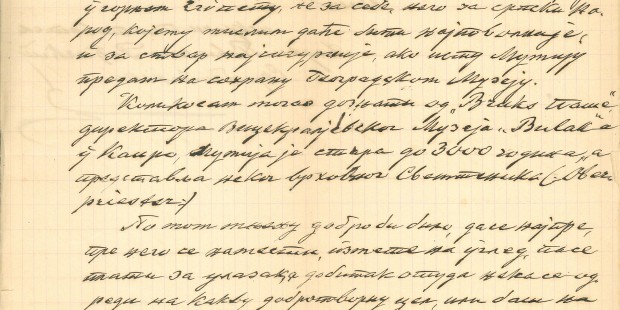 у горњем Египту, не за себе, него за српски на-
род, којему мислим да ће бити најповољније,
и за ствар најсигурније, ако исту Мумију
предам на сохрану Београдском Музеју.
Колико сам могао дознати од „Bruko Паше“,
директора Вицекраљевског Музеја „Bulak“ а
у Каиру, Мумија је стара до 3000 година, а
представља неког врховног Свештеника (: Ober
priester :)
По мом добро би било, да се најпре,
пре него се намести, изметне на углед, и се
плати за улазак, а добитак отуда нека се од-
реди на какву добротворну цел, или баш на